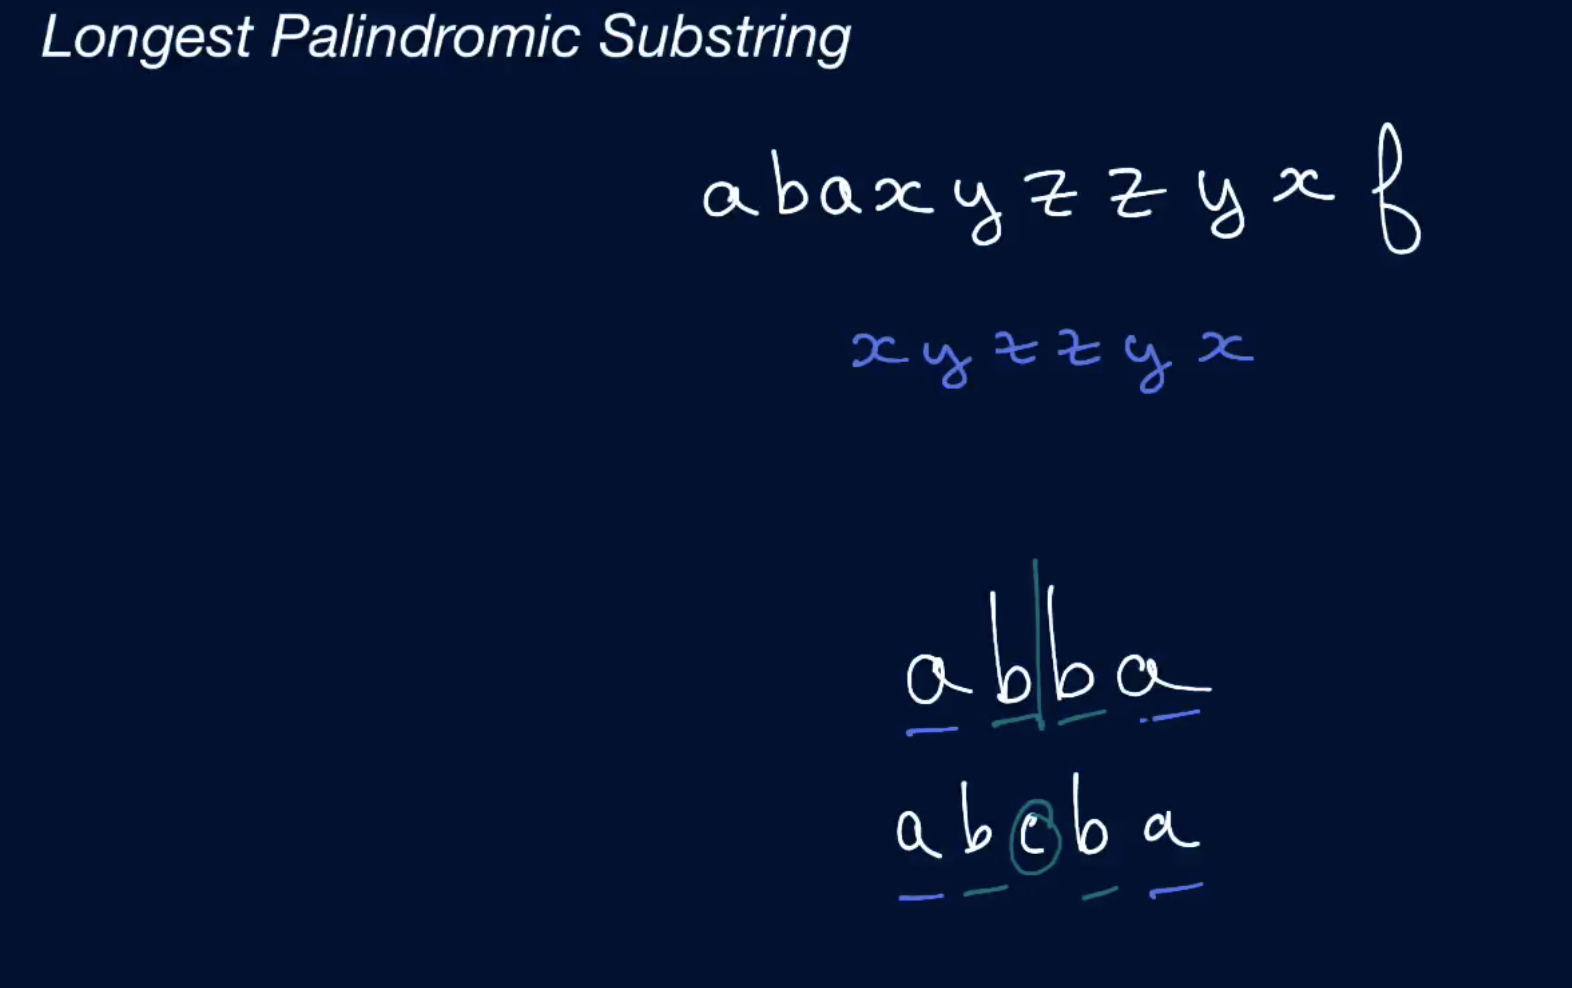 Longest Palindromic Substring
abaxyzzyxf
xyzzyx
abba
abcba